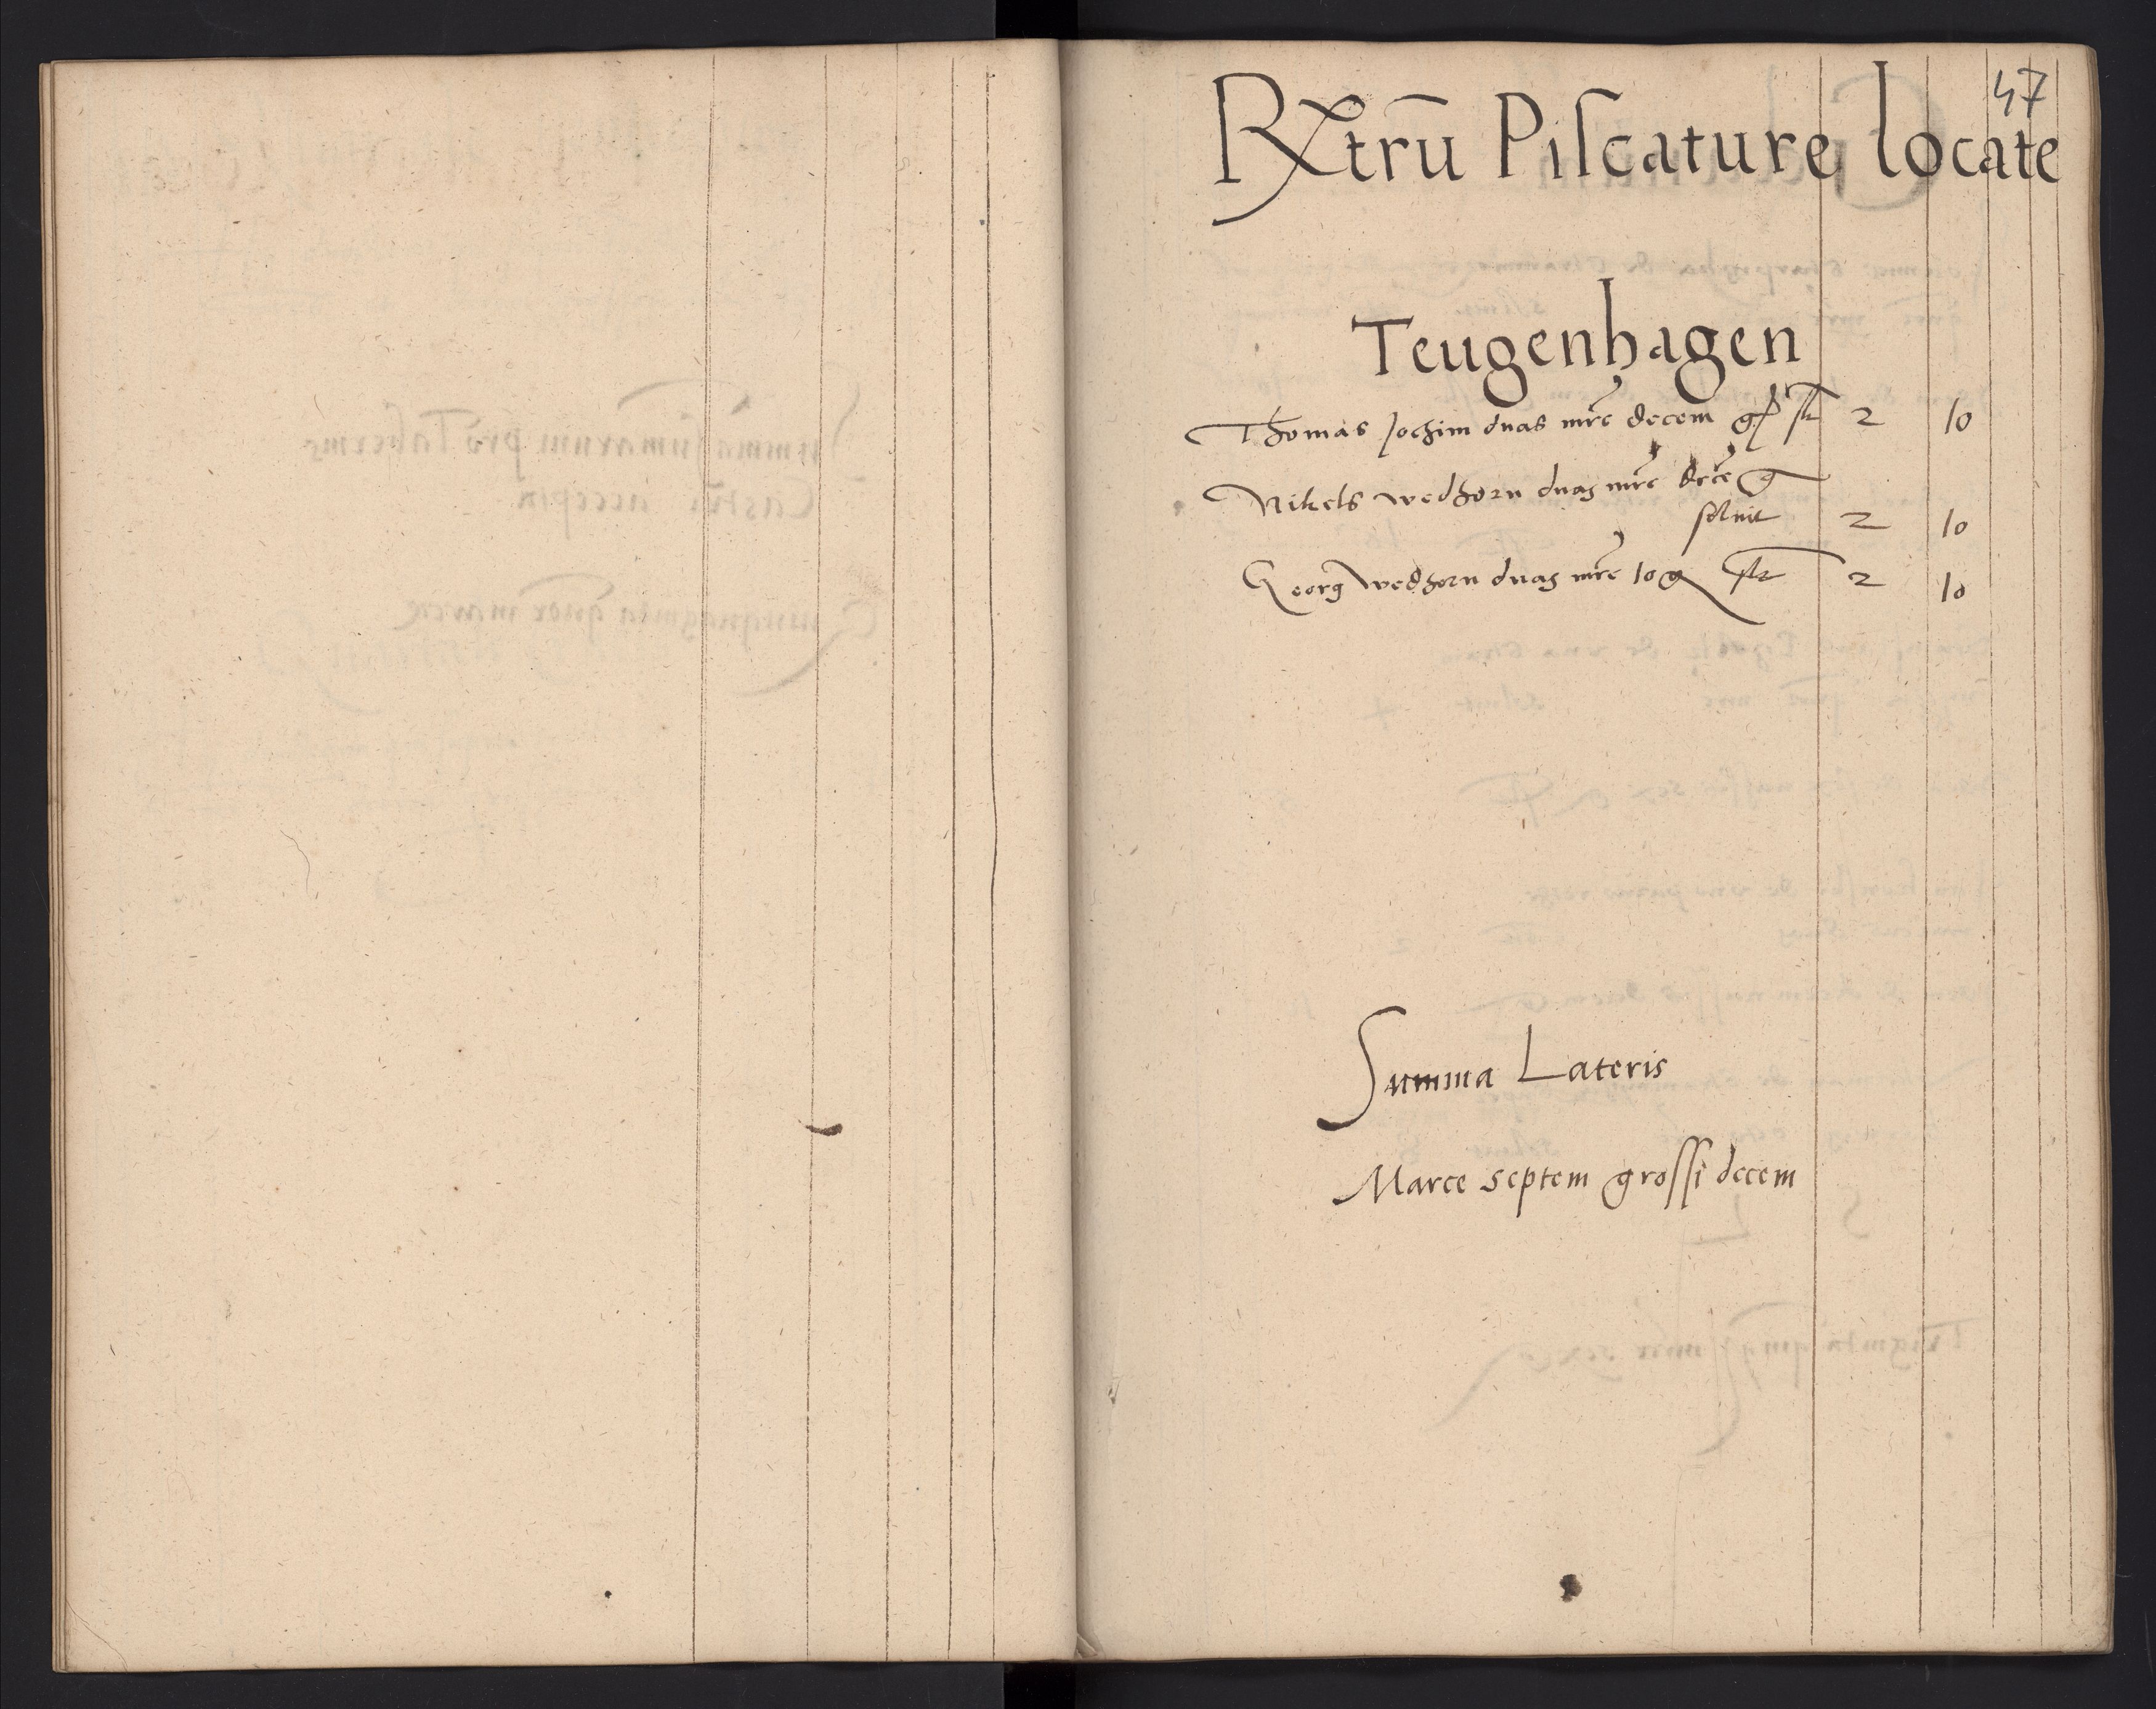 47
Rxtrū Piſcature locate
Teugenhagen
Thomas Jochim duas mrc decem gͦ slt 2 10
Nikels wedhorn duas mrc decē g
soluit 2 10
Georg wedhorn duas mrc 10 g slt 2 10
Summa Lateris
Marce septem groſſi decem